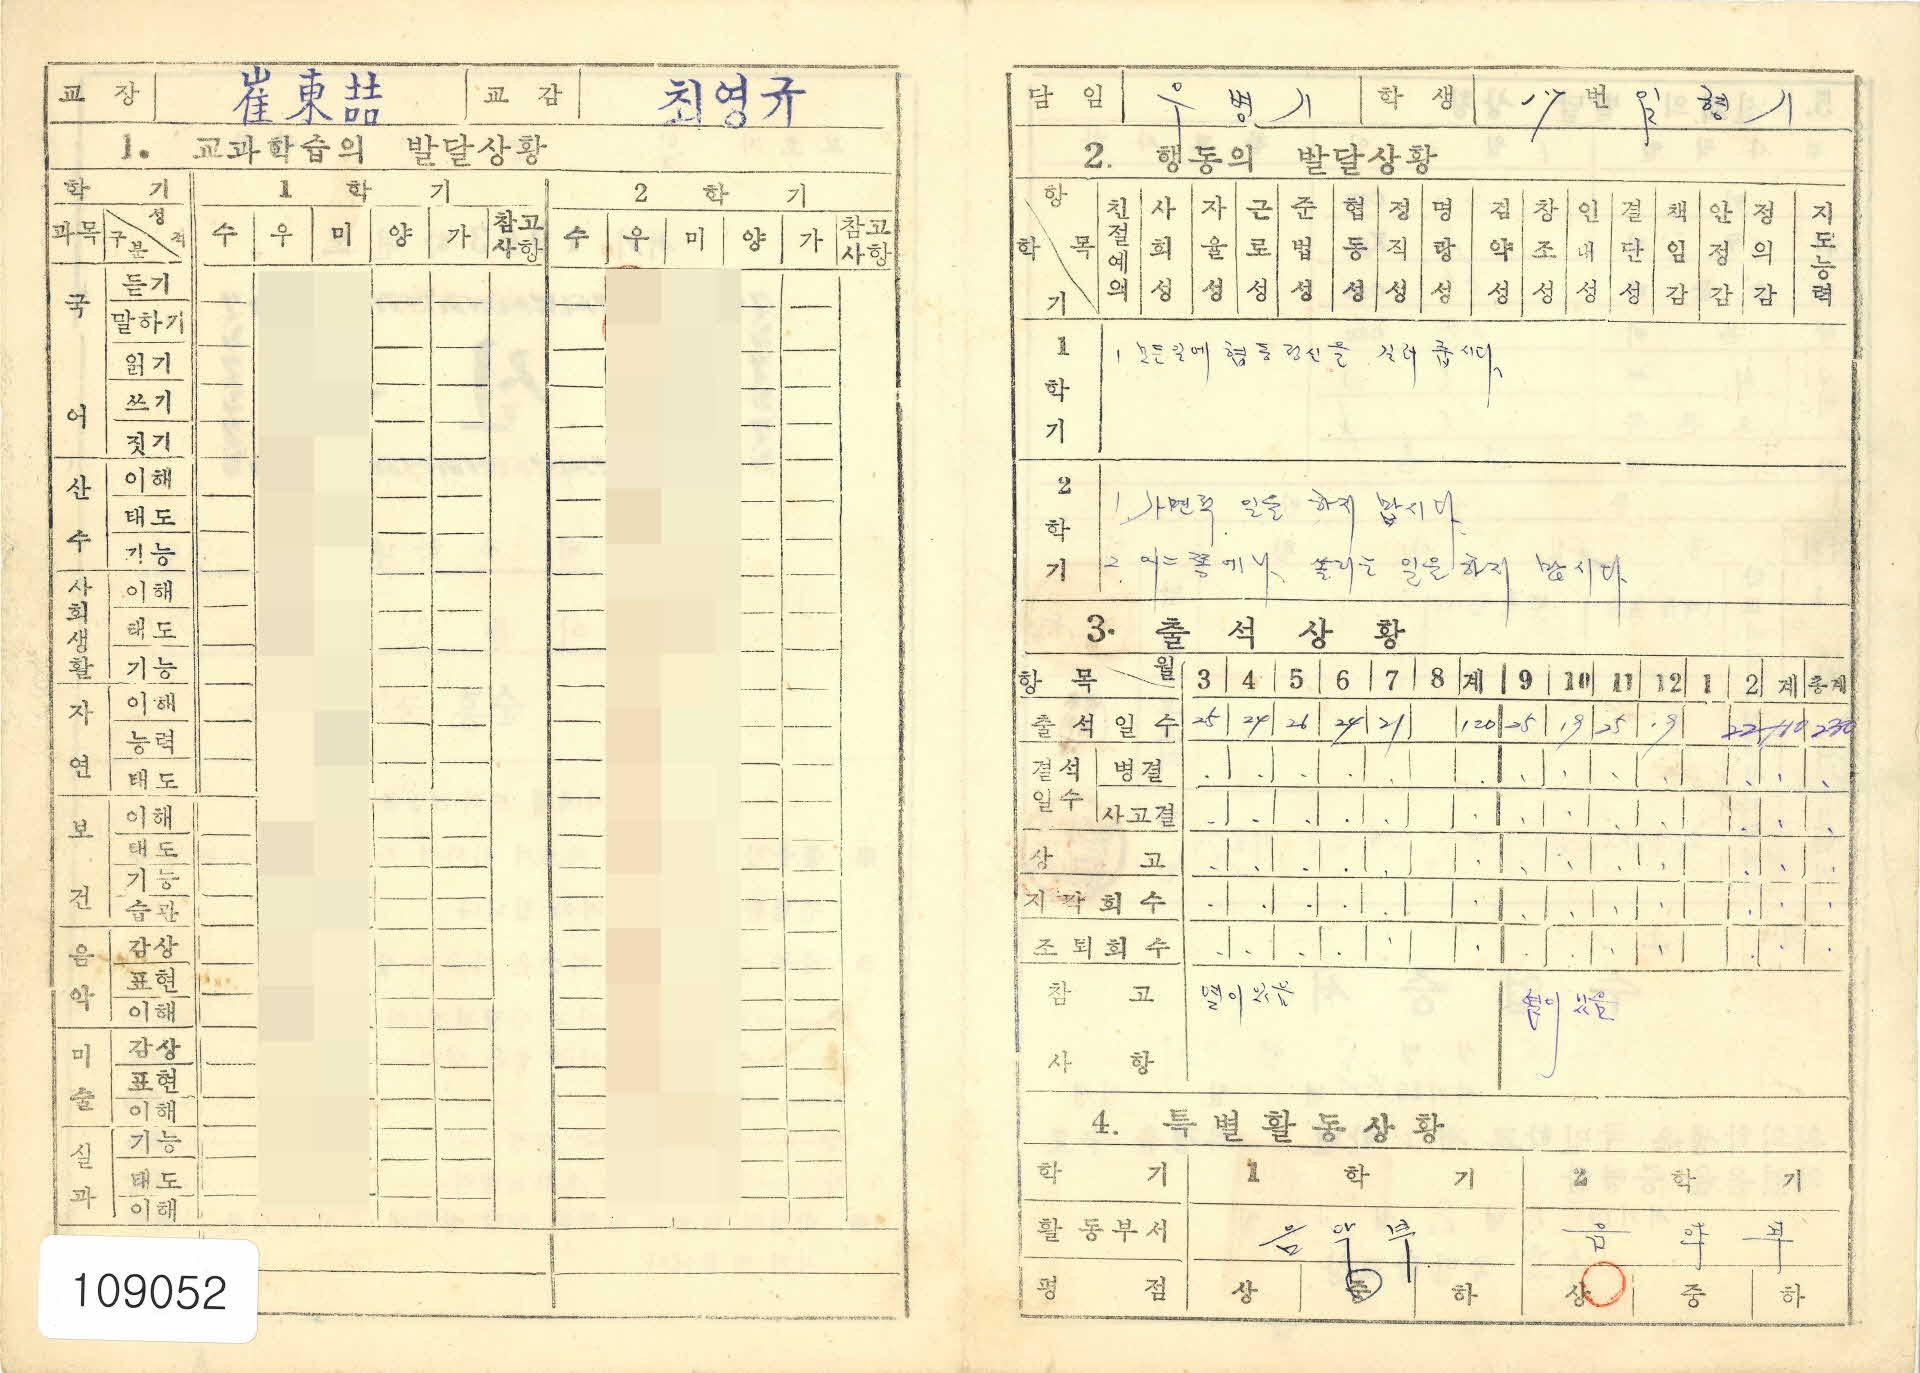 교장 崔東喆 교감 최영규
1. 교과학습의 발달상황
학기 1학기 2학기
과목 구분 성적 수 우 미 양 가 참고사항 수 우 미 양 가 참고사항
국어 듣기
말하기
읽기
쓰기
짓기
산수 이해
태도
기능
사회생활 이해
태도
기능
자연 이해
능력
태도
보건 이해
태도
기능
습관
음악 감상
표현
이해
미술 감상
표현
이해
실과 기능
태도
이해
109052
담임 우병기 학생 번 형기
2. 행동의 발달상황
항목 학기 친절예의 사회성 자율성 근로성 준법성 협동성 정직성 명랑성 검약성 창조성 인내성 결단성 책임감 안정감 정의감 지도능력
1학기 1. 모든일에 협동정신을 길러 줍시다.
2학기 1. 일을 하지 맙시다.
2. 어느쪽에나 쏠리는 일을 하지 맙시다.
3. 출석상황
항목 월 3 4 5 6 7 8 계 9 10 11 12 1 2 계 총계
출석일수 25 24 26 24 21 120 25 19 25 19 22 110 230
결석일수 병결
사고결
상고
지각회수
조퇴회수
참고사항 열이 있음 있음
4. 특별활동상황
학기 1학기 2학기
활동부서 음악부 음악부
평점 상 중 하 상 중 하